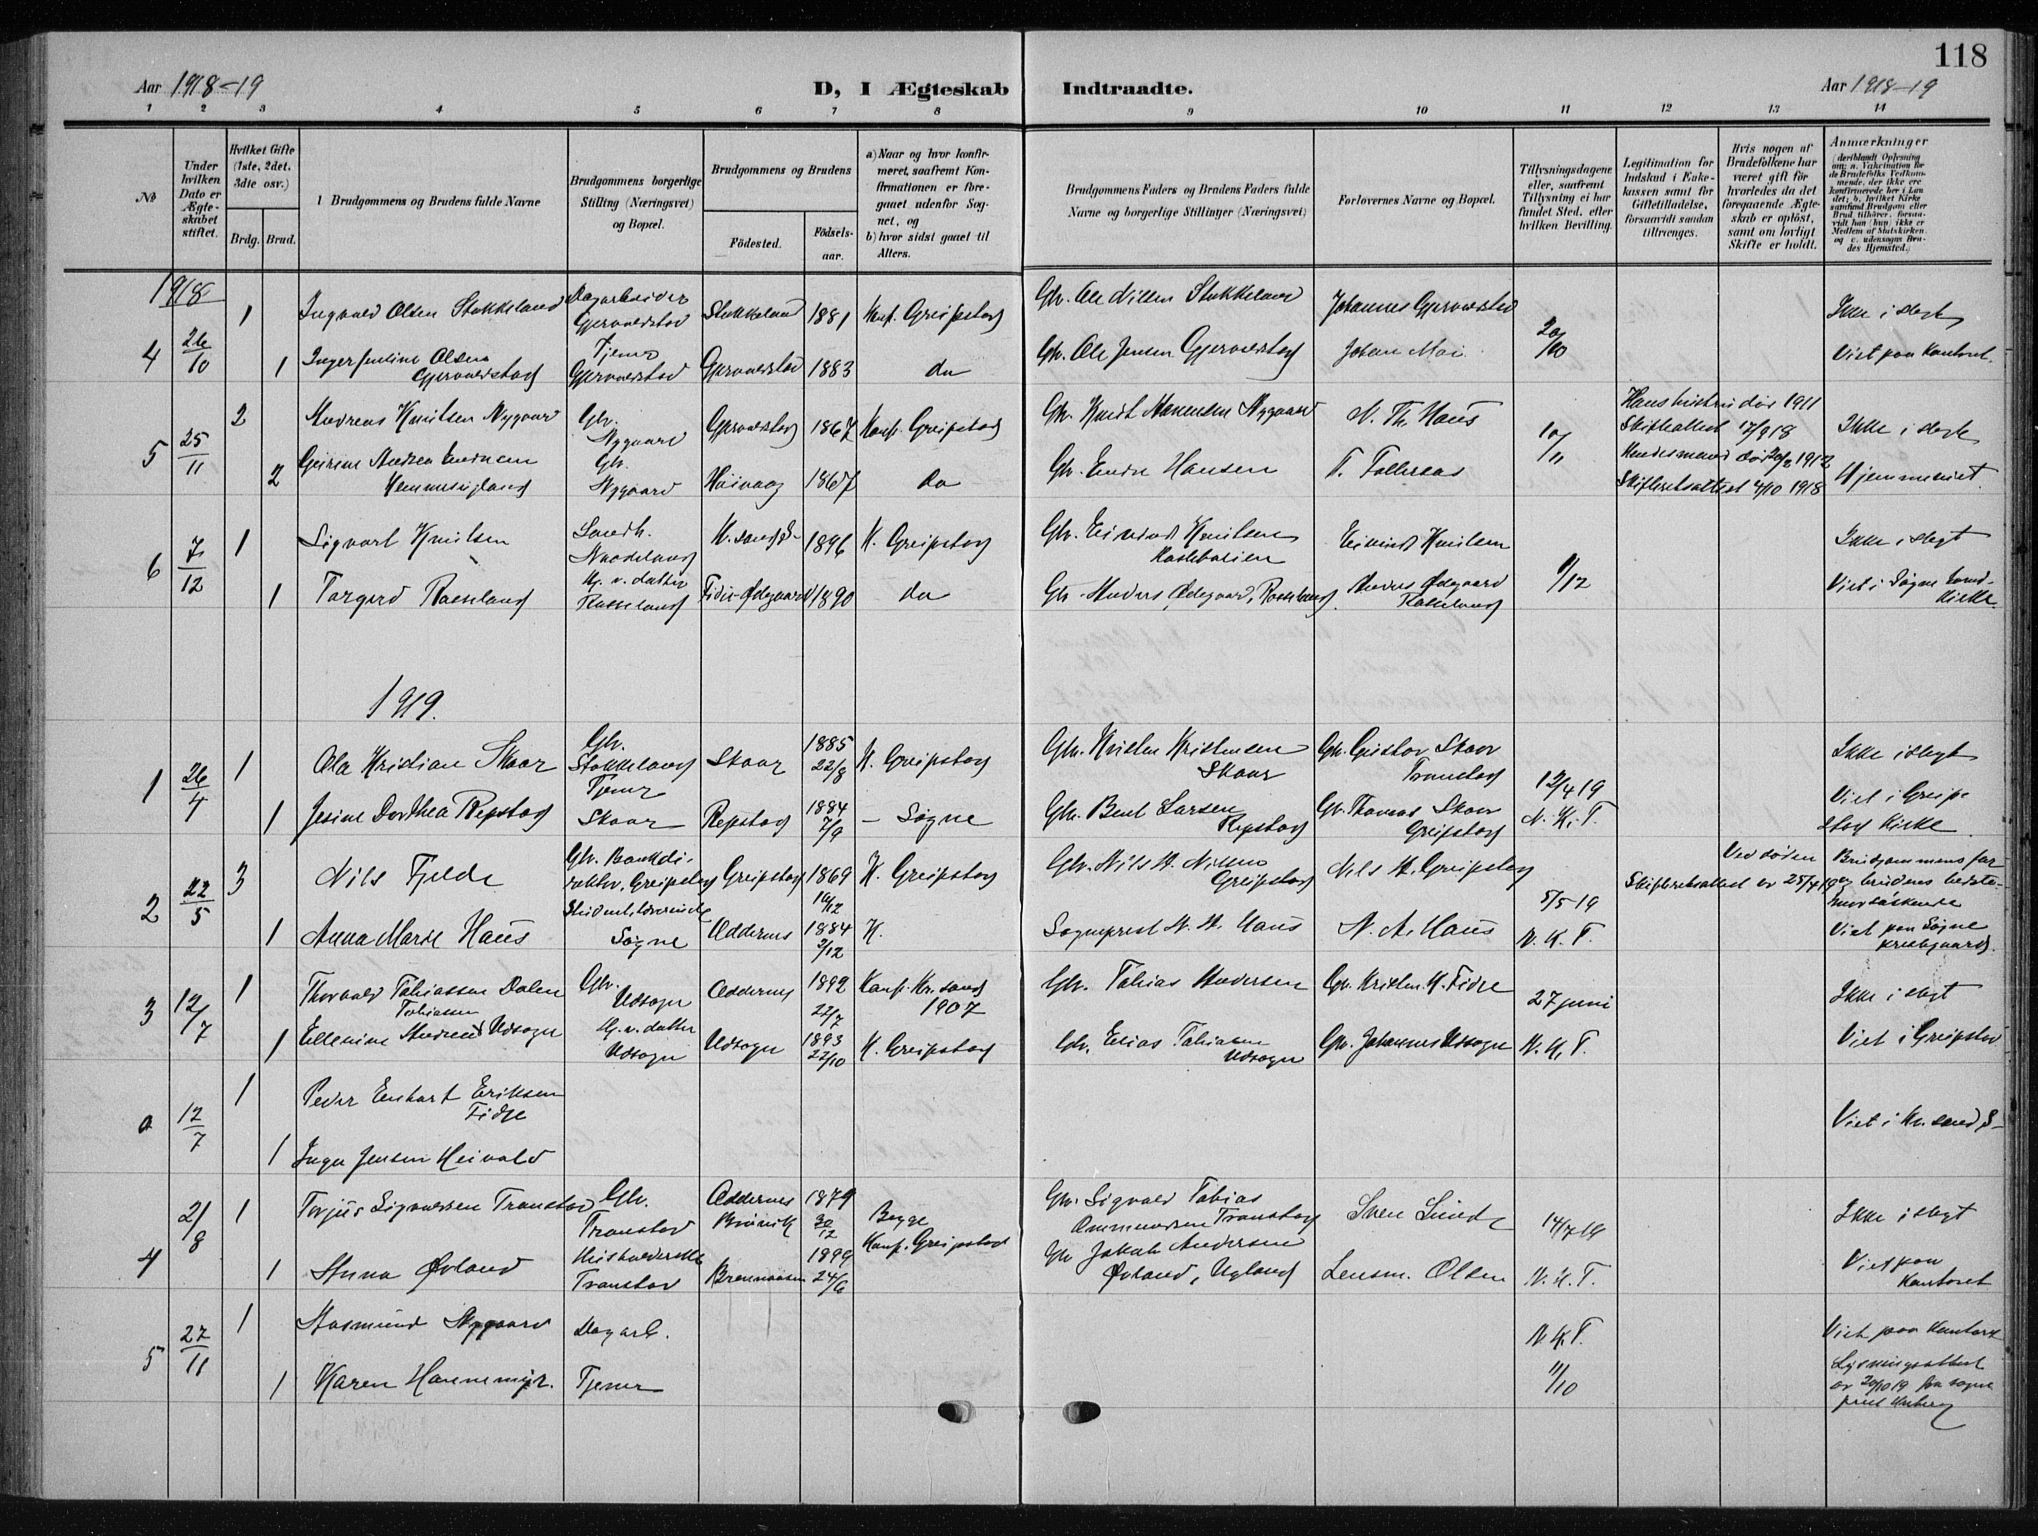 118
Aar 1918-19
D, I Ægteskab Indtraadte.
Aar 1918-19
1 2 3 4 5 6 7 8 9 10 11 12 13 14
No
Under hvilken Dato er Ægteskabet stiftet.
Hvilket Gifte (1ste, 2det, 3die osv.)
Brdg. Brud.
1 Brudgommens og Brudens fulde Navne
Brudgommens borgerlige Stilling (Næringsvei) og Bopæl.
Brudgommens og Brudens
Födested.
Födsels-aar.
a) Naar og hvor konfirmeret, saafremt Konfirmationen er foregaaet udenfor Sognet, og
b) hvor sidst gaaet til Alters.
Brudgommens Faders og Brudens Faders fulde Navne og borgerlige Stillinger (Næringsvei)
Forlovernes Navne og Bopæl.
Tillysningsdagene eller, saafremt Tillysning ei har fundet Sted, efter hvilken Bevilling.
Legitimation for Indskud i Enkekassen samt for Giftetilladelse, forsaavidt saadan tiltrænges.
Hvis nogen af Brudefolkene har været gift før hvorledes da det foregaaende Ægteskab er oplöst, samt om lovligt Skifte er holdt.
Anmærkninger
1918
4 26/10 1 Ingvald Olsen Stokkeland Dagarbeider Gjervoldstad Stokkeland 1881 Konf. Greipstad Gbr. Ole Nilsen Stokkeland Johannes Gjervoldstad 20/10 Ikke i slegt
1 Inger Juline Olsen Gjervoldstad Tjener Gjervoldstad Gjervoldstad 1883 do Gbr. Ole Jensen Gjervoldstad Johan Moi Viet paa Kontoret.
5 25/11 2 Andreas Knutsen Nygaard Gbr. Nygaard Gjervoldstad 1867 Konf. Greipstad Gbr. Knudt Nygaard N. Th. Haus 10/11 Hans hustru død 1911 Skifteattest 17/9 18 Ikke i slegt
2 Andrea Gbr. Nygaard Høivaag 1867 do Gbr. Endre Hansen T. Folleraas Hendes mand død 20/2 1912 Skifteretsattest 4/10 1918 Hjemmeviet.
6 7/12 1 Sigvart Knutsen Nodeland Kr.sand S. 1896 K. Greipstad Gbr. Eivind Knutsen Eivind Knutsen 1/12 Ikke i slegt
1 Torgerd Rosseland Hj. v. datter Rosseland Fidje-Ødegaard 1890 do Gbr. Anders Ødegaard, Rosseland Anders Ødegaard Rosseland Viet i Søgne hovedkirke.
1919.
1 26/4 1 Ola Kristian Skaar Gbr. Stokkeland Skaar 1885 22/8 K. Greipstad Gbr. Kristen Kristensen Skaar Gbr. Gustav Skaar Tronstad 12/4 19 Ikke i slegt
1 Jesine Dorthea Repstad Tjener Skaar Repstad 1884 7/9 - Søgne Gbr. Bent Larsen Repstad Gbr. Thomas Skaar Greipstad N. K. T. Viet i Greipstad Kirke.
2 22/5 3 Nils Fjelde Gbr. Bankdirektør, Greipstad Greipstad 1869 16/12 K. Greipstad Gbr. Nils N. Nilsen Greipstad Nils N. Greipstad 5/5 19 Skifteretsattest av 25/4 19 Ved døden Brudgommens far og brudens bedstemor søskende
1 Anna Marie Haus Student, lærerinde Søgne Oddernes 1884 2/12 K. Sogneprest N. N. Haus N. A. Haus N. K. T. Viet paa Søgne prestegaard.
3 12/7 1 Thorvald Tobiassen Dalen Gbr. Udsogn Oddernes 1892 22/7 Konf. Kr.sand 1907 Gbr. Tobias Andersen Gbr. Kristen K. Fidje 27 juni Ikke i slegt
1 Ellenine Andrea Tobiassen Udsogn Hj. v. datter Udsogn Udsogn 1893 22/10 K. Greipstad Gbr. Elias Tobiassen Udsogn Gbr. Johannes Udsogn N. K. T. Viet i Greipstad
a 12/7 1 Peder Enhart Eriksen Fidje Viet i Kr.sand S-
1 Inga Jensen Heivold
4 2/8 1 Torjus Sigvaldsen Tronstad Gbr. Tronstad Oddernes 1879 30/12 Begge Konf. Greipstad Gbr. Sigvald Tobias Tronstad Sven Sunde 14/7 19 Ikke i slegt
1 Anna Øvland Husholderske Tronstad Brennaasen 1899 24/6 Gbr. Jakob Andersen Øvland, Ugland Lensm. Olsen N. K. T. Viet paa Kontoret
5 27/11 1 Aasmund Nygaard Dagarb. N. K. T. Viet paa Kontoret
1 Karen Hannemyr. Tjener 11/10 Lysningsattest av 20/10 19 fra sogneprest